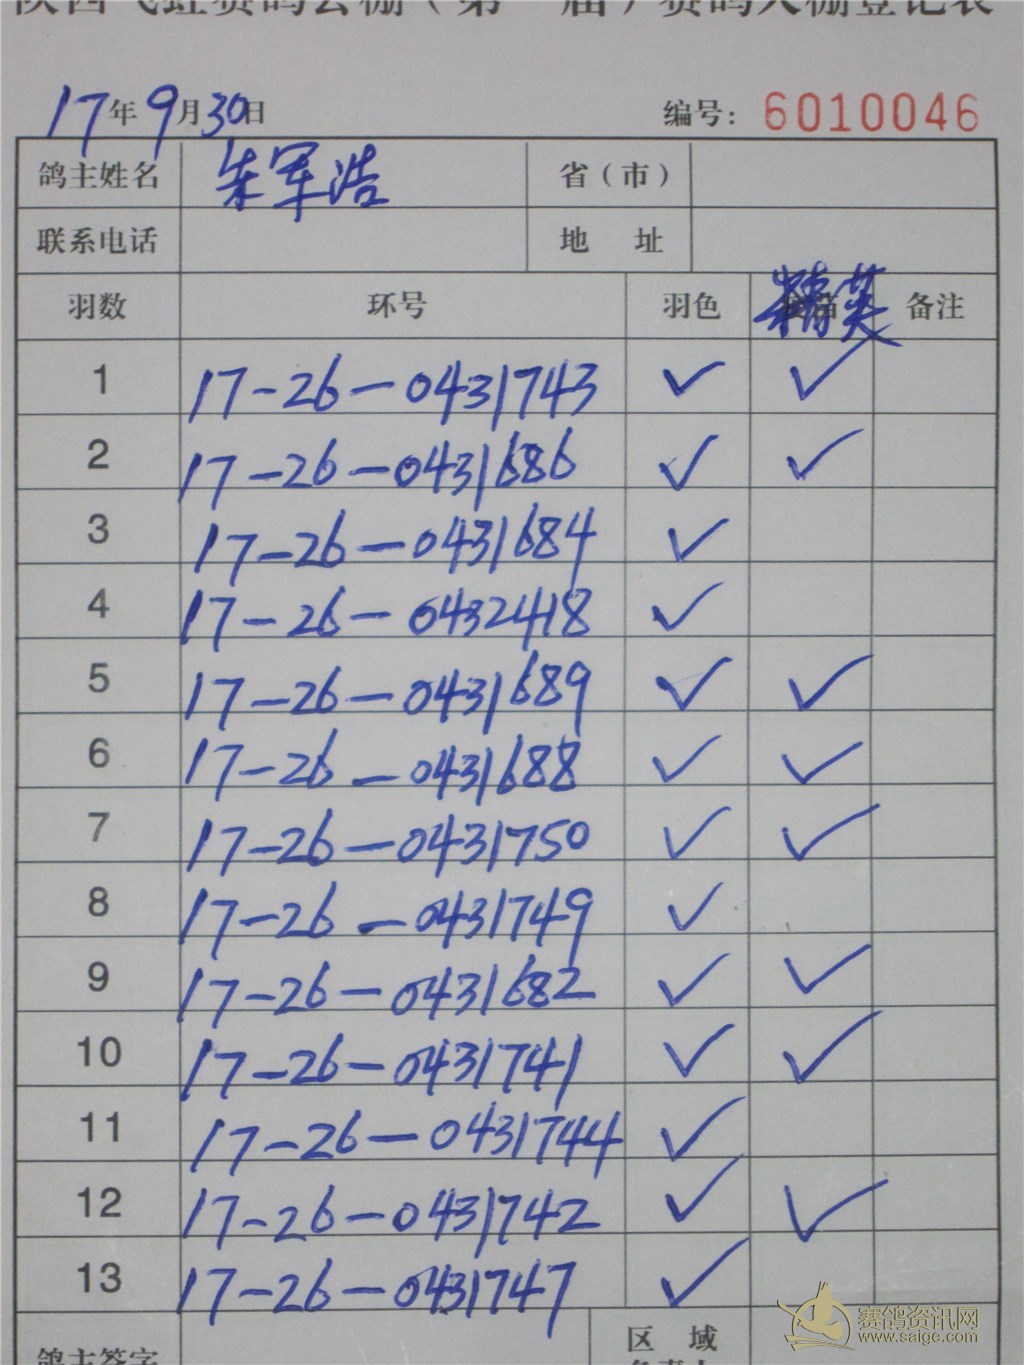 陕西飞虹赛鸽公棚（第一届）赛鸽入棚登记表
17年9月30日 编号：6010046
鸽主姓名 朱军浩 省（市）
联系电话 地址
羽数 环号 羽色 精英 备注
1 17-26-0431743 ✓ ✓
2 17-26-0431686 ✓ ✓
3 17-26-0431684 ✓
4 17-26-0432418 ✓
5 17-26-0431689 ✓ ✓
6 17-26-0431688 ✓ ✓
7 17-26-0431750 ✓ ✓
8 17-26-0431749 ✓
9 17-26-0431682 ✓ ✓
10 17-26-0431741 ✓ ✓
11 17-26-0431744 ✓
12 17-26-0431742 ✓ ✓
13 17-26-0431747 ✓
鸽主签字 区域
赛鸽资讯网
www.saige.com